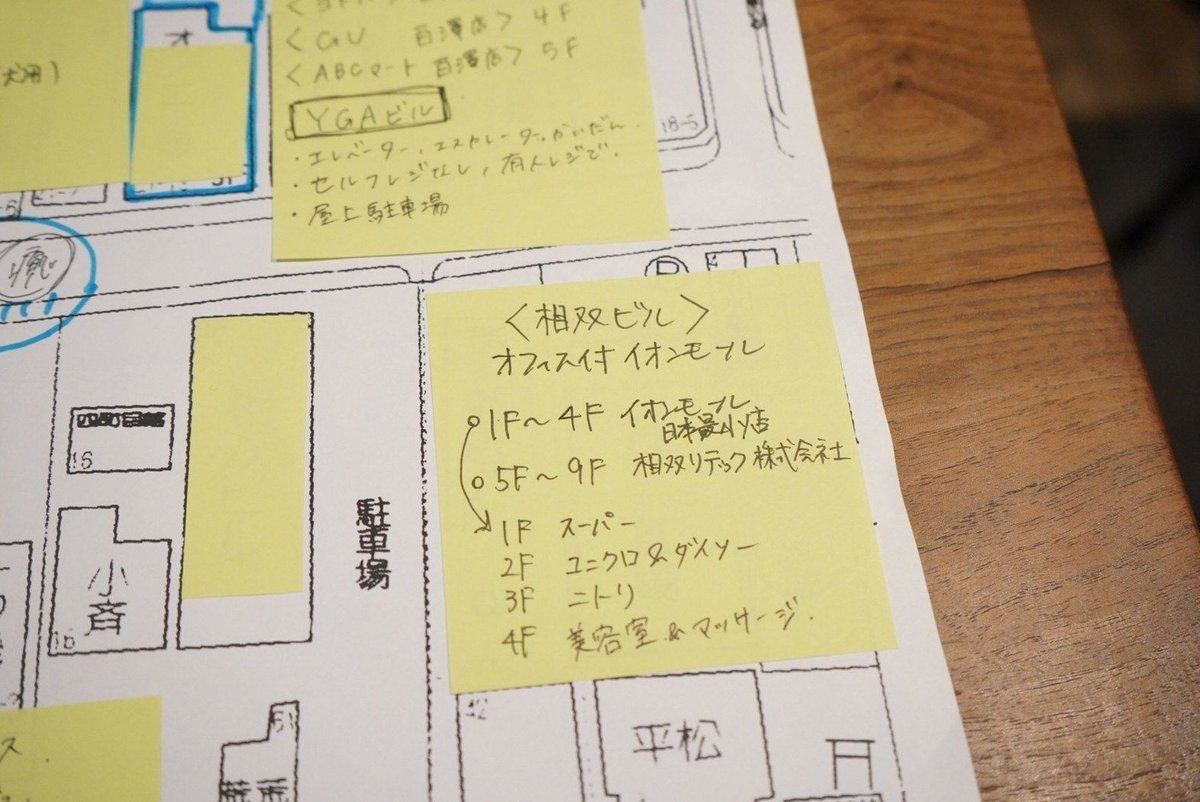 <GU 百澤店> 4F
<ABCマート 百澤店> 5F
YGAビル
・エレベーター、エスカレーター、かいだん
・セルフレジなし、有人レジで.
・屋上駐車場
犬用)
オ
18-5
P
<相双ビル>
オフィス付 イオンモール
○1F～4F イオンモール
日本最小店
○5F～9F 相双リテック株式会社
1F スーパー
2F ユニクロ&ダイソー
3F ニトリ
4F 美容室&マッサージ.
16
駐車場
小斉
10
42
平松
ス